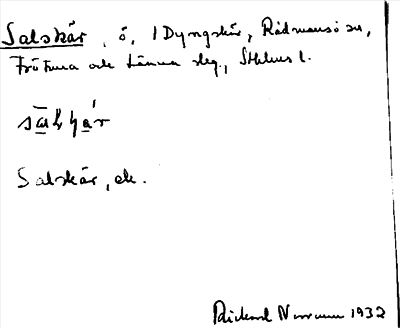 Salskär, ö, i Dyngskär, Rådmansö sn,
Frötuna och Länna slg., Sthlms l.
Salskär, ek.
Rickard Norrman 1932